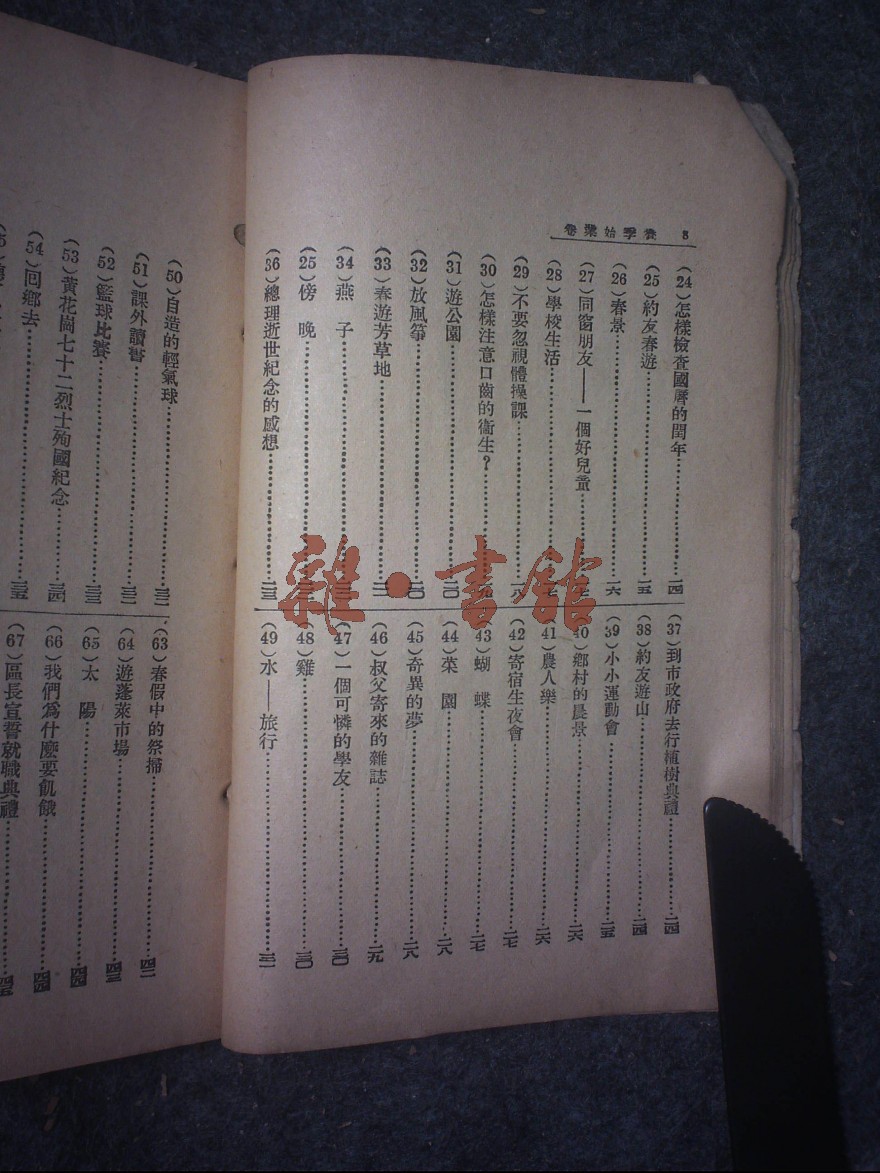 8 春季始業卷
(24)怎樣檢查國曆的閏年……一四
(25)約友春遊……一五
(26)春景……一六
(27)同窗朋友——一個好兒童……
(28)學校生活……
(29)不要忽視體操課……一八
(30)怎樣注意口齒的衞生？……
(31)遊公園……二〇
(32)放風箏……二〇
(33)春遊芳草地……
(34)燕 子……
(25)傍 晚……
(36)總理逝世紀念的感想……二三
(37)到市政府去行植樹典禮……二四
(38)約友遊山……二四
(39)小小運動會……二五
(40)鄉村的晨景……二六
(41)農人樂……二六
(42)寄宿生夜會……二七
(43)蝴 蝶……二七
(44)菜 園……二八
(45)奇異的夢……二八
(46)叔父寄來的雜誌……二九
(47)一個可憐的學友……三〇
(48)雞……三〇
(49)水——旅行……三一
(50)自造的輕氣球……三二
(51)課外讀書……三二
(52)籃球比賽……三三
(53)黃花崗七十二烈士殉國紀念……三四
(54)囘鄉去……三五
(63)春假中的祭掃……四二
(64)遊蓬萊市場……四三
(65)太 陽……四四
(66)我們爲什麽要飢餓……四四
(67)區長宣誓就職典禮……四五
雜·書館